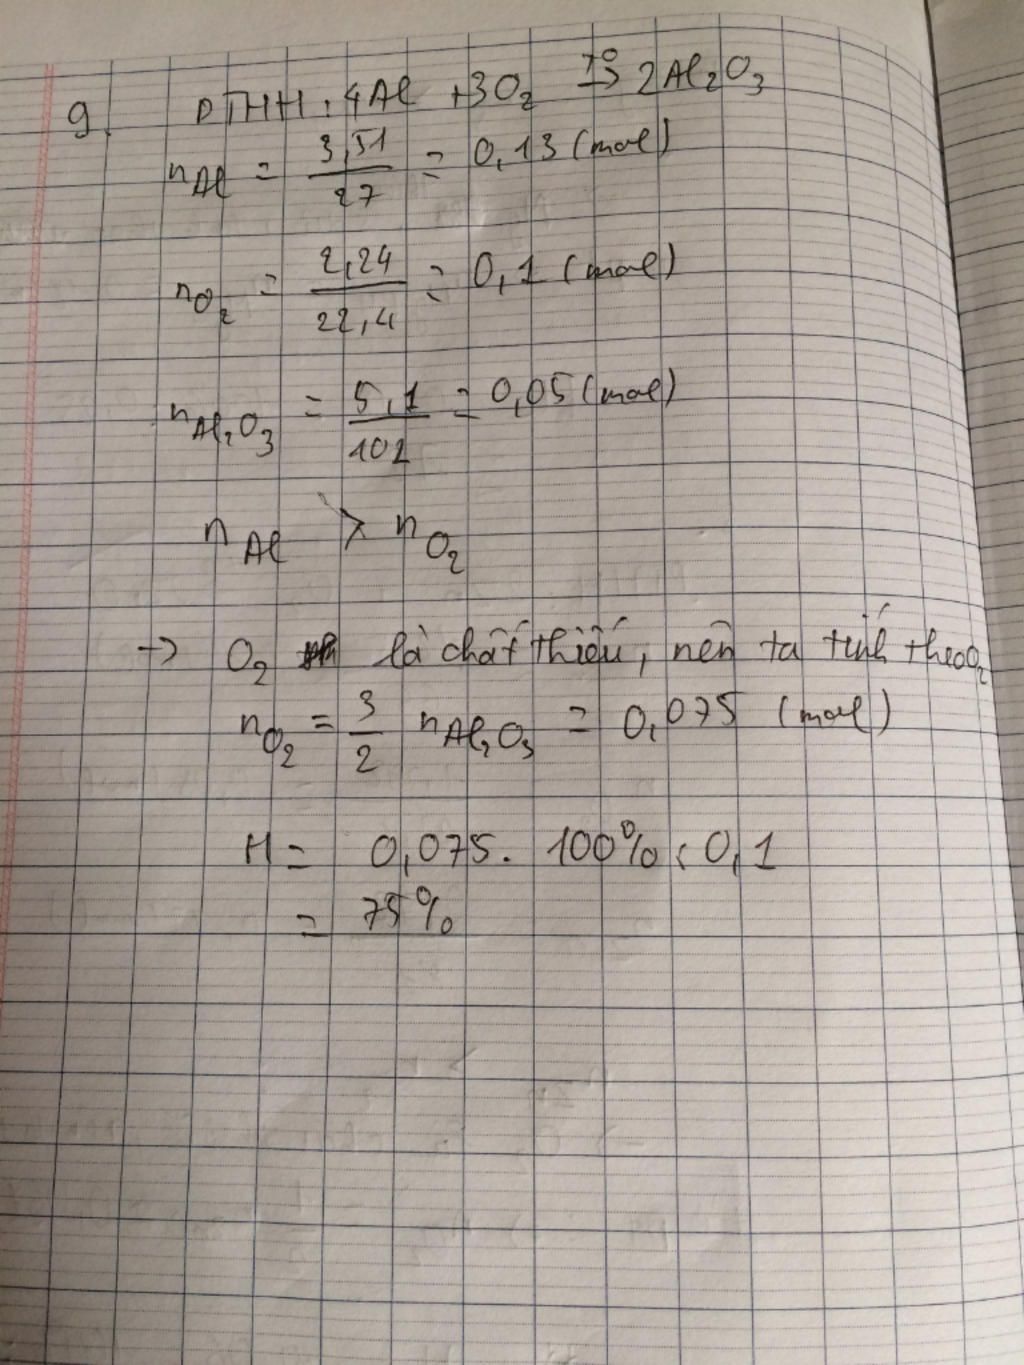 9. PTHH: 4Al + 3O₂ →ᵗ° 2Al₂O₃
n Al = 3,51/27 = 0,13 (mol)
n O₂ = 2,24/22,4 = 0,1 (mol)
n Al₂O₃ = 5,1/102 = 0,05 (mol)
n Al > n O₂
→ O₂ là chất thiếu, nên ta tính theo O₂
n O₂ = 3/2 n Al₂O₃ = 0,075 (mol)
H = 0,075. 100% : 0,1
= 75%